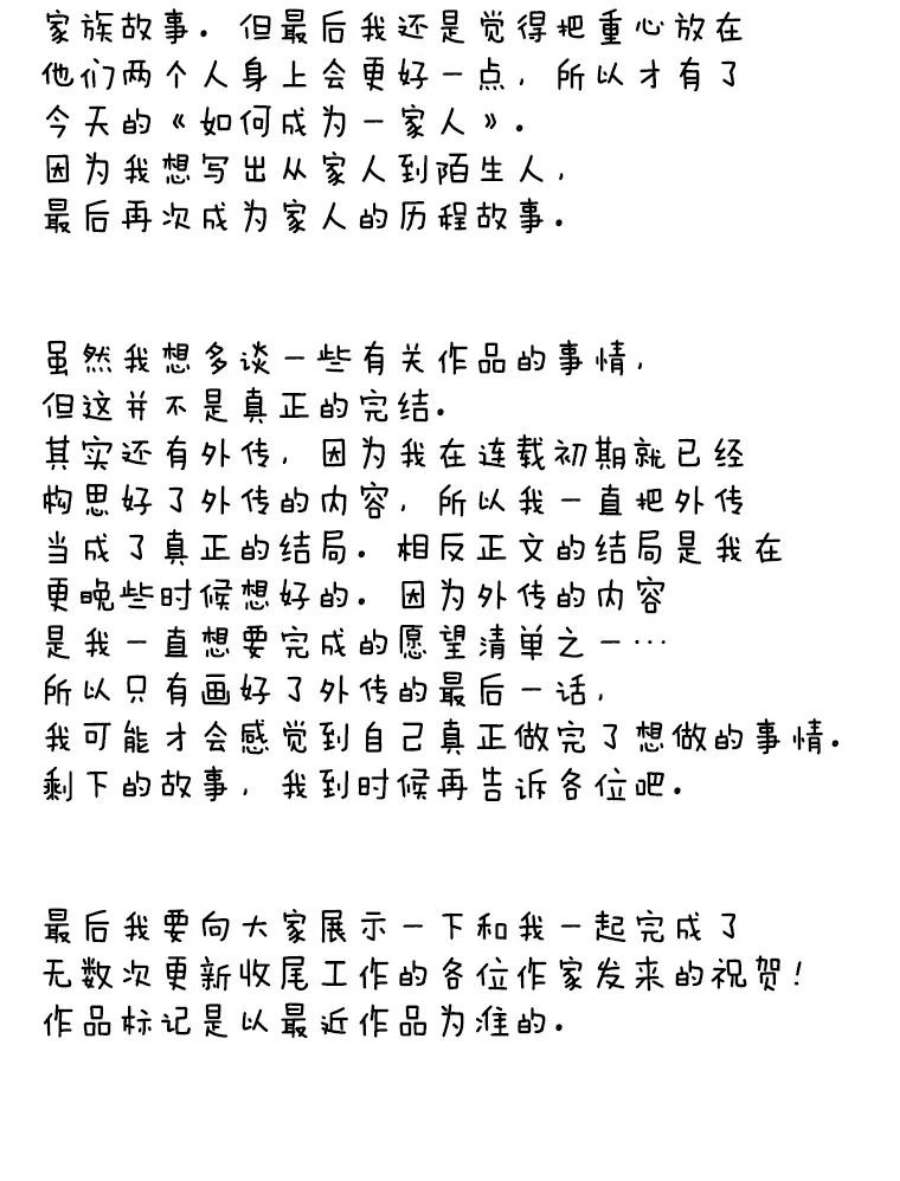 家族故事. 但最后我还是觉得把重心放在
他们两个人身上会更好一点, 所以才有了
今天的《如何成为一家人》.
因为我想写出从家人到陌生人,
最后再次成为家人的历程故事.
虽然我想多谈一些有关作品的事情,
但这并不是真正的完结.
其实还有外传, 因为我在连载初期就已经
构思好了外传的内容, 所以我一直把外传
当成了真正的结局. 相反正文的结局是我在
更晚些时候想好的. 因为外传的内容
是我一直想要完成的愿望清单之一…
所以只有画好了外传的最后一话,
我可能才会感觉到自己真正做完了想做的事情.
剩下的故事, 我到时候再告诉各位吧.
最后我要向大家展示一下和我一起完成了
无数次更新收尾工作的各位作家发来的祝贺!
作品标记是以最近作品为准的.